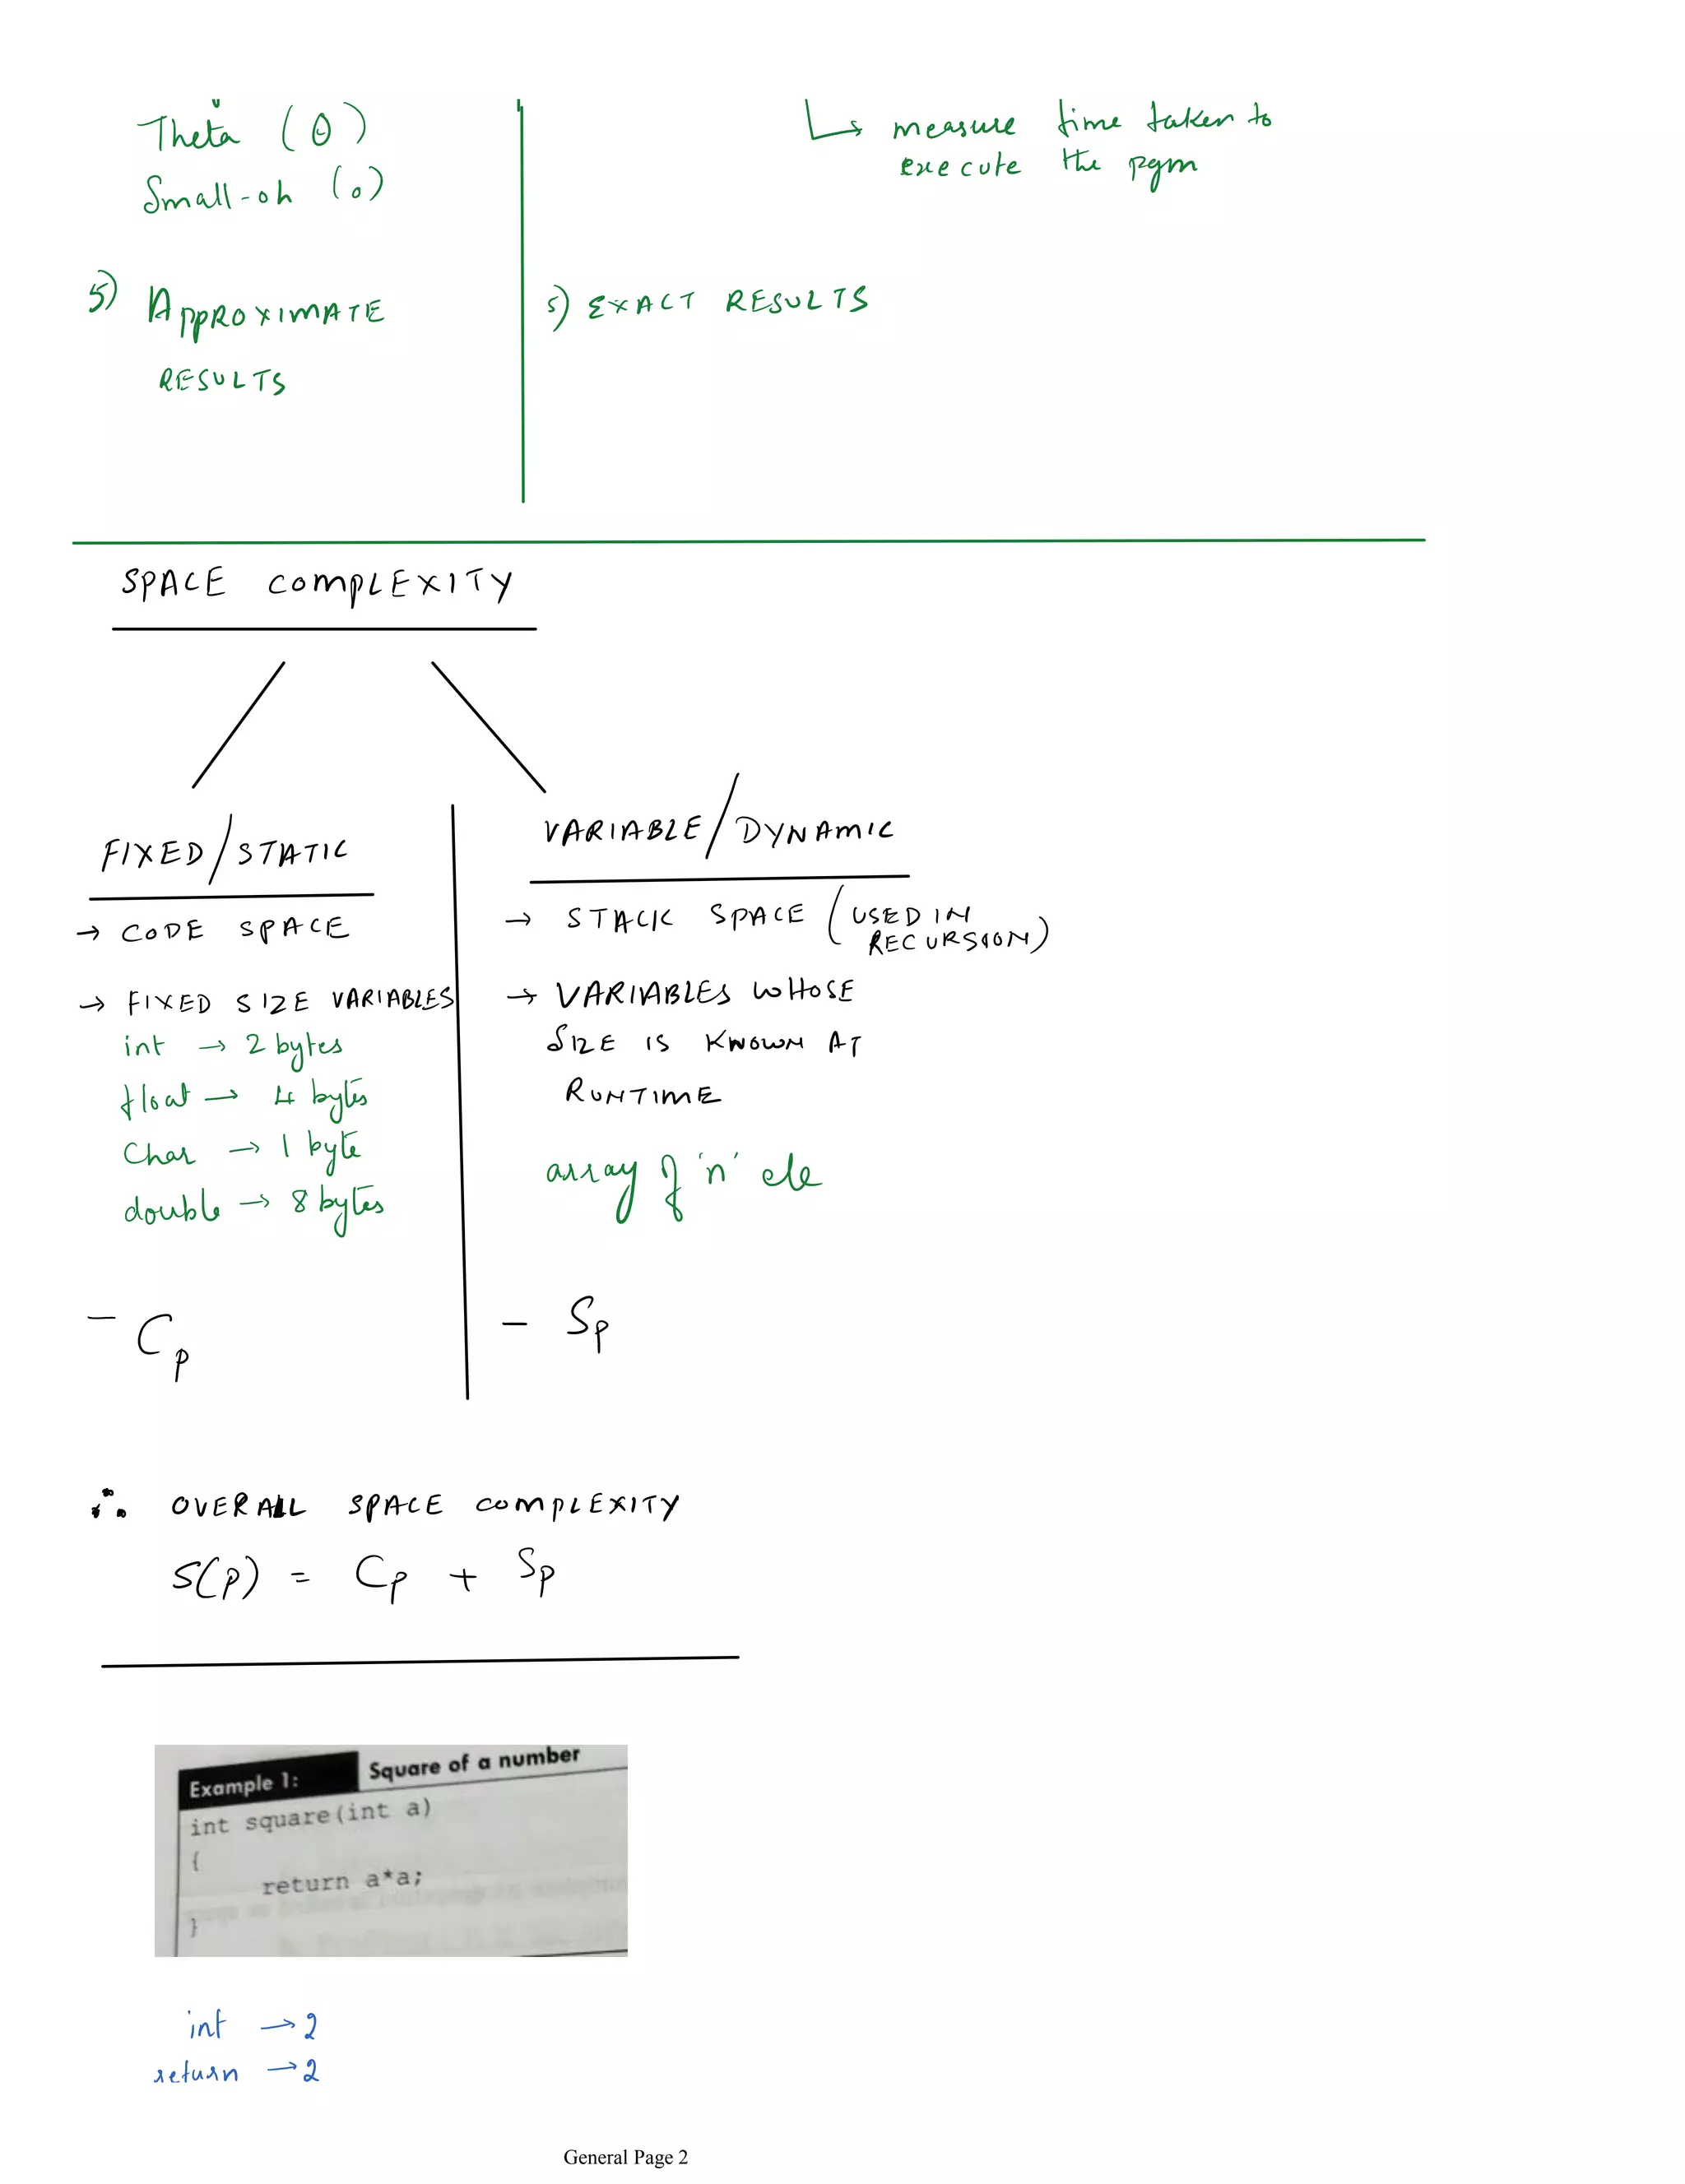 Theta (θ)
Small-oh (o)
↳ measure time taken to
execute the pgm
5) APPROXIMATE
RESULTS
5) EXACT RESULTS
SPACE COMPLEXITY
FIXED/STATIC
→ CODE SPACE
→ FIXED SIZE VARIABLES
int → 2 bytes
float → 4 bytes
Char → 1 byte
double → 8 bytes
- Cp
VARIABLE/DYNAMIC
→ STACK SPACE (USED IN
RECURSION)
→ VARIABLES WHOSE
SIZE IS KNOWN AT
RUNTIME
array of 'n' ele
- Sp
∴ OVERALL SPACE COMPLEXITY
S(P) = Cp + Sp
Example 1: Square of a number
int square(int a)
{
return a*a;
}
int → 2
return → 2
General Page 2